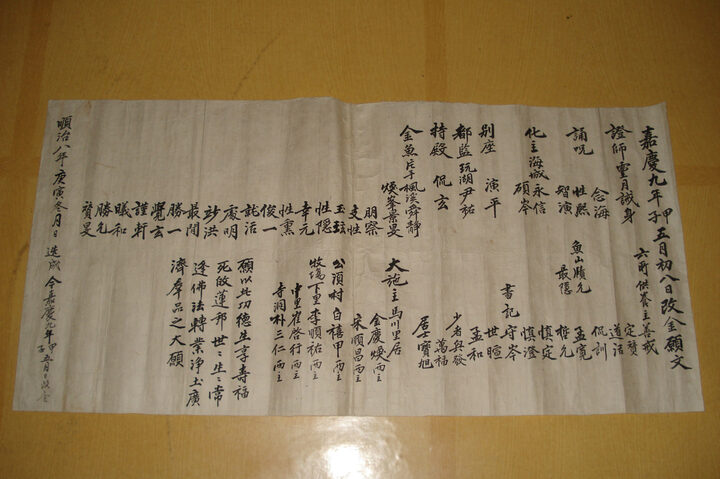 嘉慶九年甲子五月初八日改金願文
證師 雪月誠身
六所供養主 善戒
定賛
道活
念海
誦呪 性熙
侃訓
智演
魚山 勝允
孟寬
最隱
哲允
化主 海城永信
愼定
碩岑
愼澄
書記 守岑
別座 演平
世暄
都監 玩湖尹祐
孟和
持殿 侃玄
少者 與發
萬福
金魚片手 楓溪舜靜
居士 寶旭
煥峯業旻
大施主 馬川里居
明察
金慶煥 兩主
文性
宋順昌 兩主
玉珍
公須村 白禧甲 兩主
性隱
牧場下里 李順祐 兩主
幸元
中里 崔啓行 兩主
性熏
寺洞 朴三仁 兩主
俊一
就活
願以此功德生享壽福
處明
死皈蓮邦世世生生常
妙洪
逢佛法轉業淨土廣
最閒
濟羣品之大願
勝一
覺玄
謹軒
曦和
勝允
贊旻
順治八年庚寅冬月日造成 今嘉慶九年甲子五月日改金